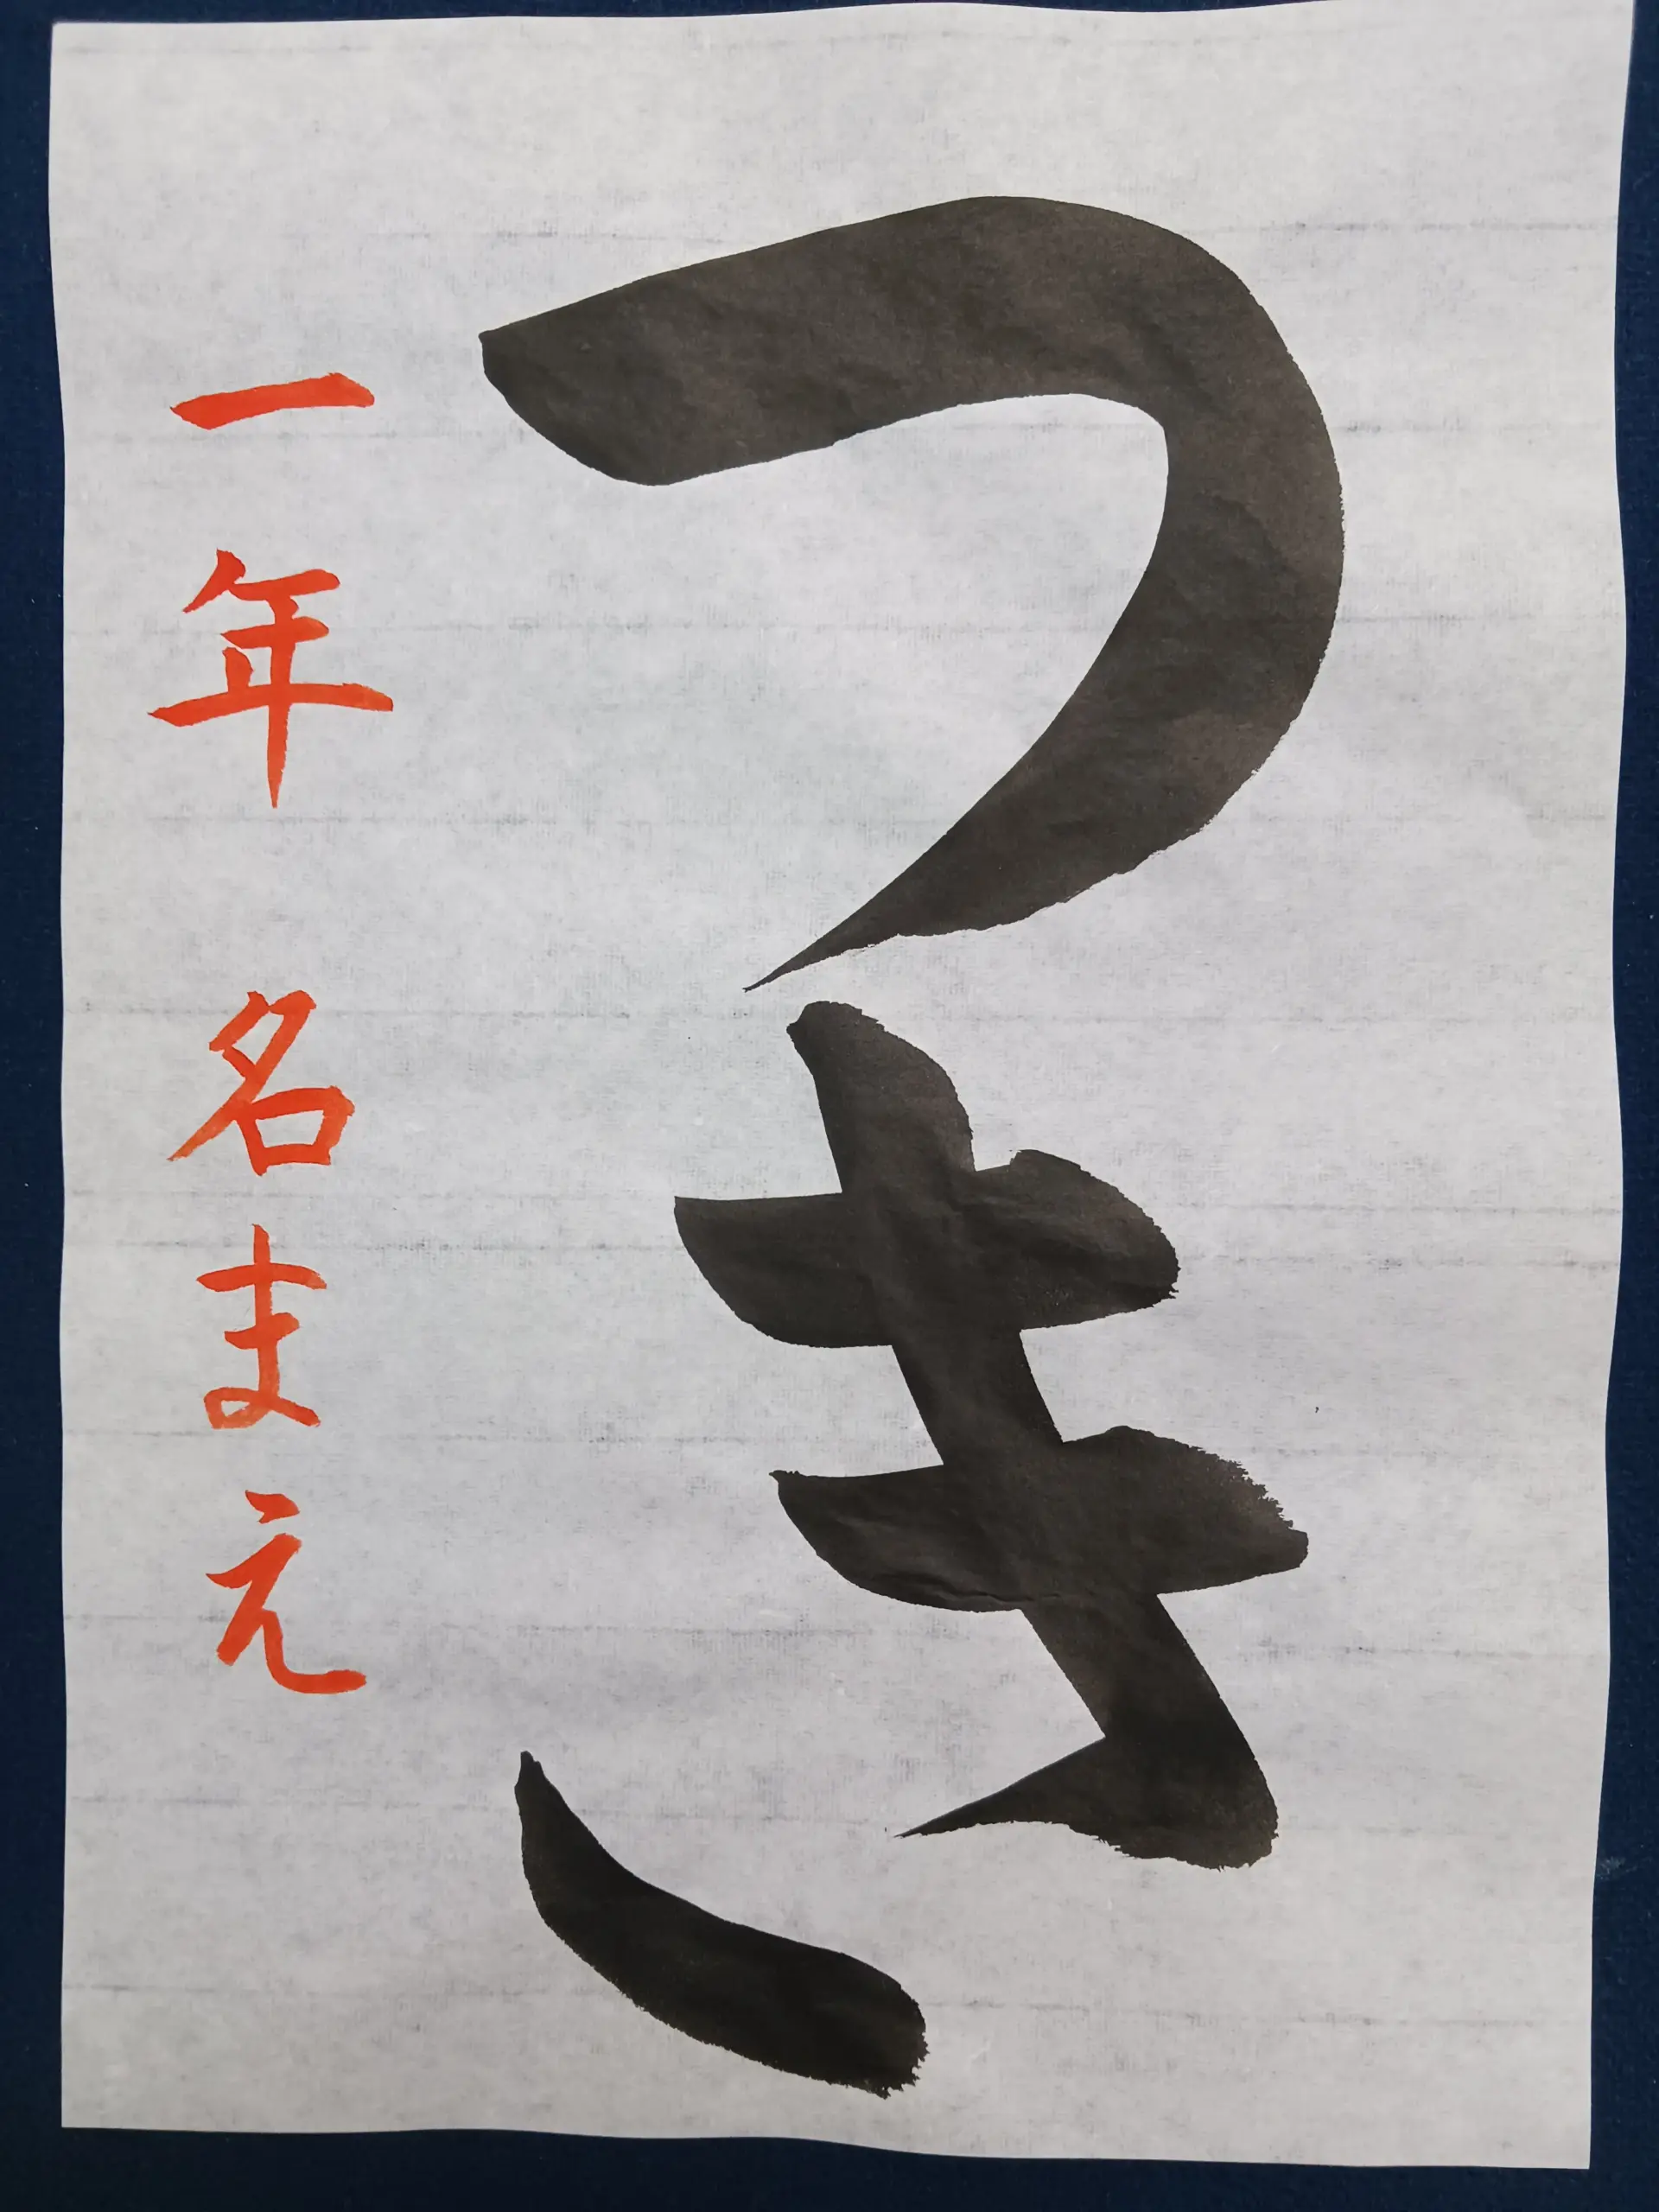 つき
一年 名まえ